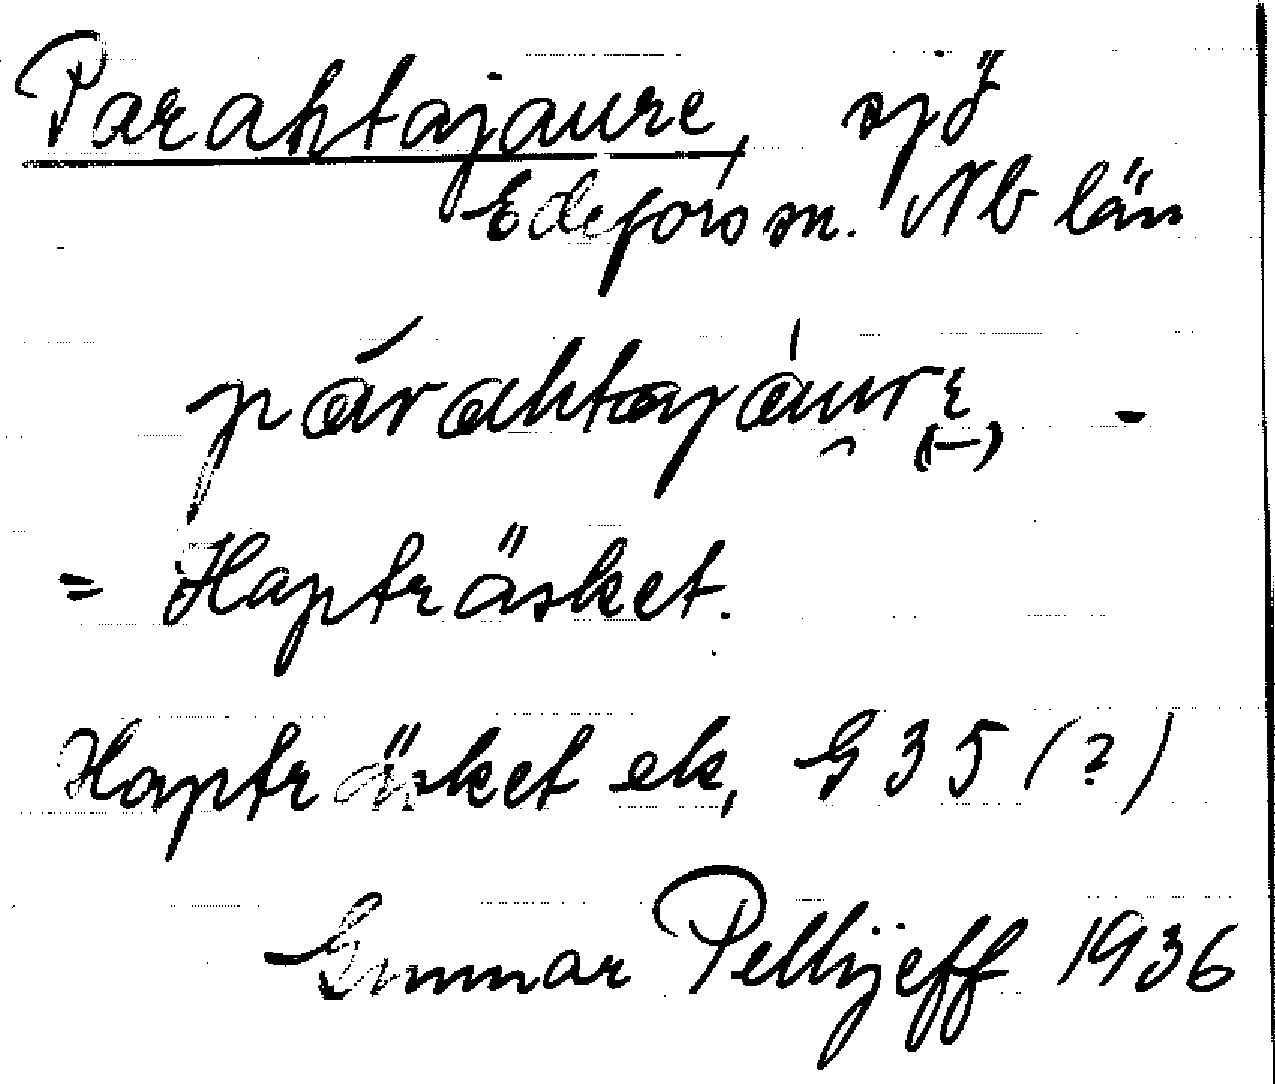 Parahtajaure, sjö
Edefors sn. Nb län
párahtajáurɛ –
(–)
= Hapträsket.
Hapträsket ek, G 35 (?)
Gunnar Pellijeff 1936